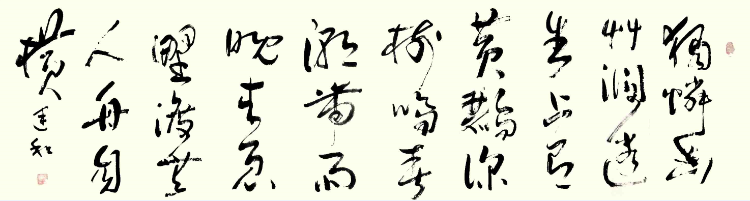 獨憐幽
艸澗邊
生上有
黃鸝深
樹鳴春
潮帶雨
晚來急
野渡無
人舟自
橫